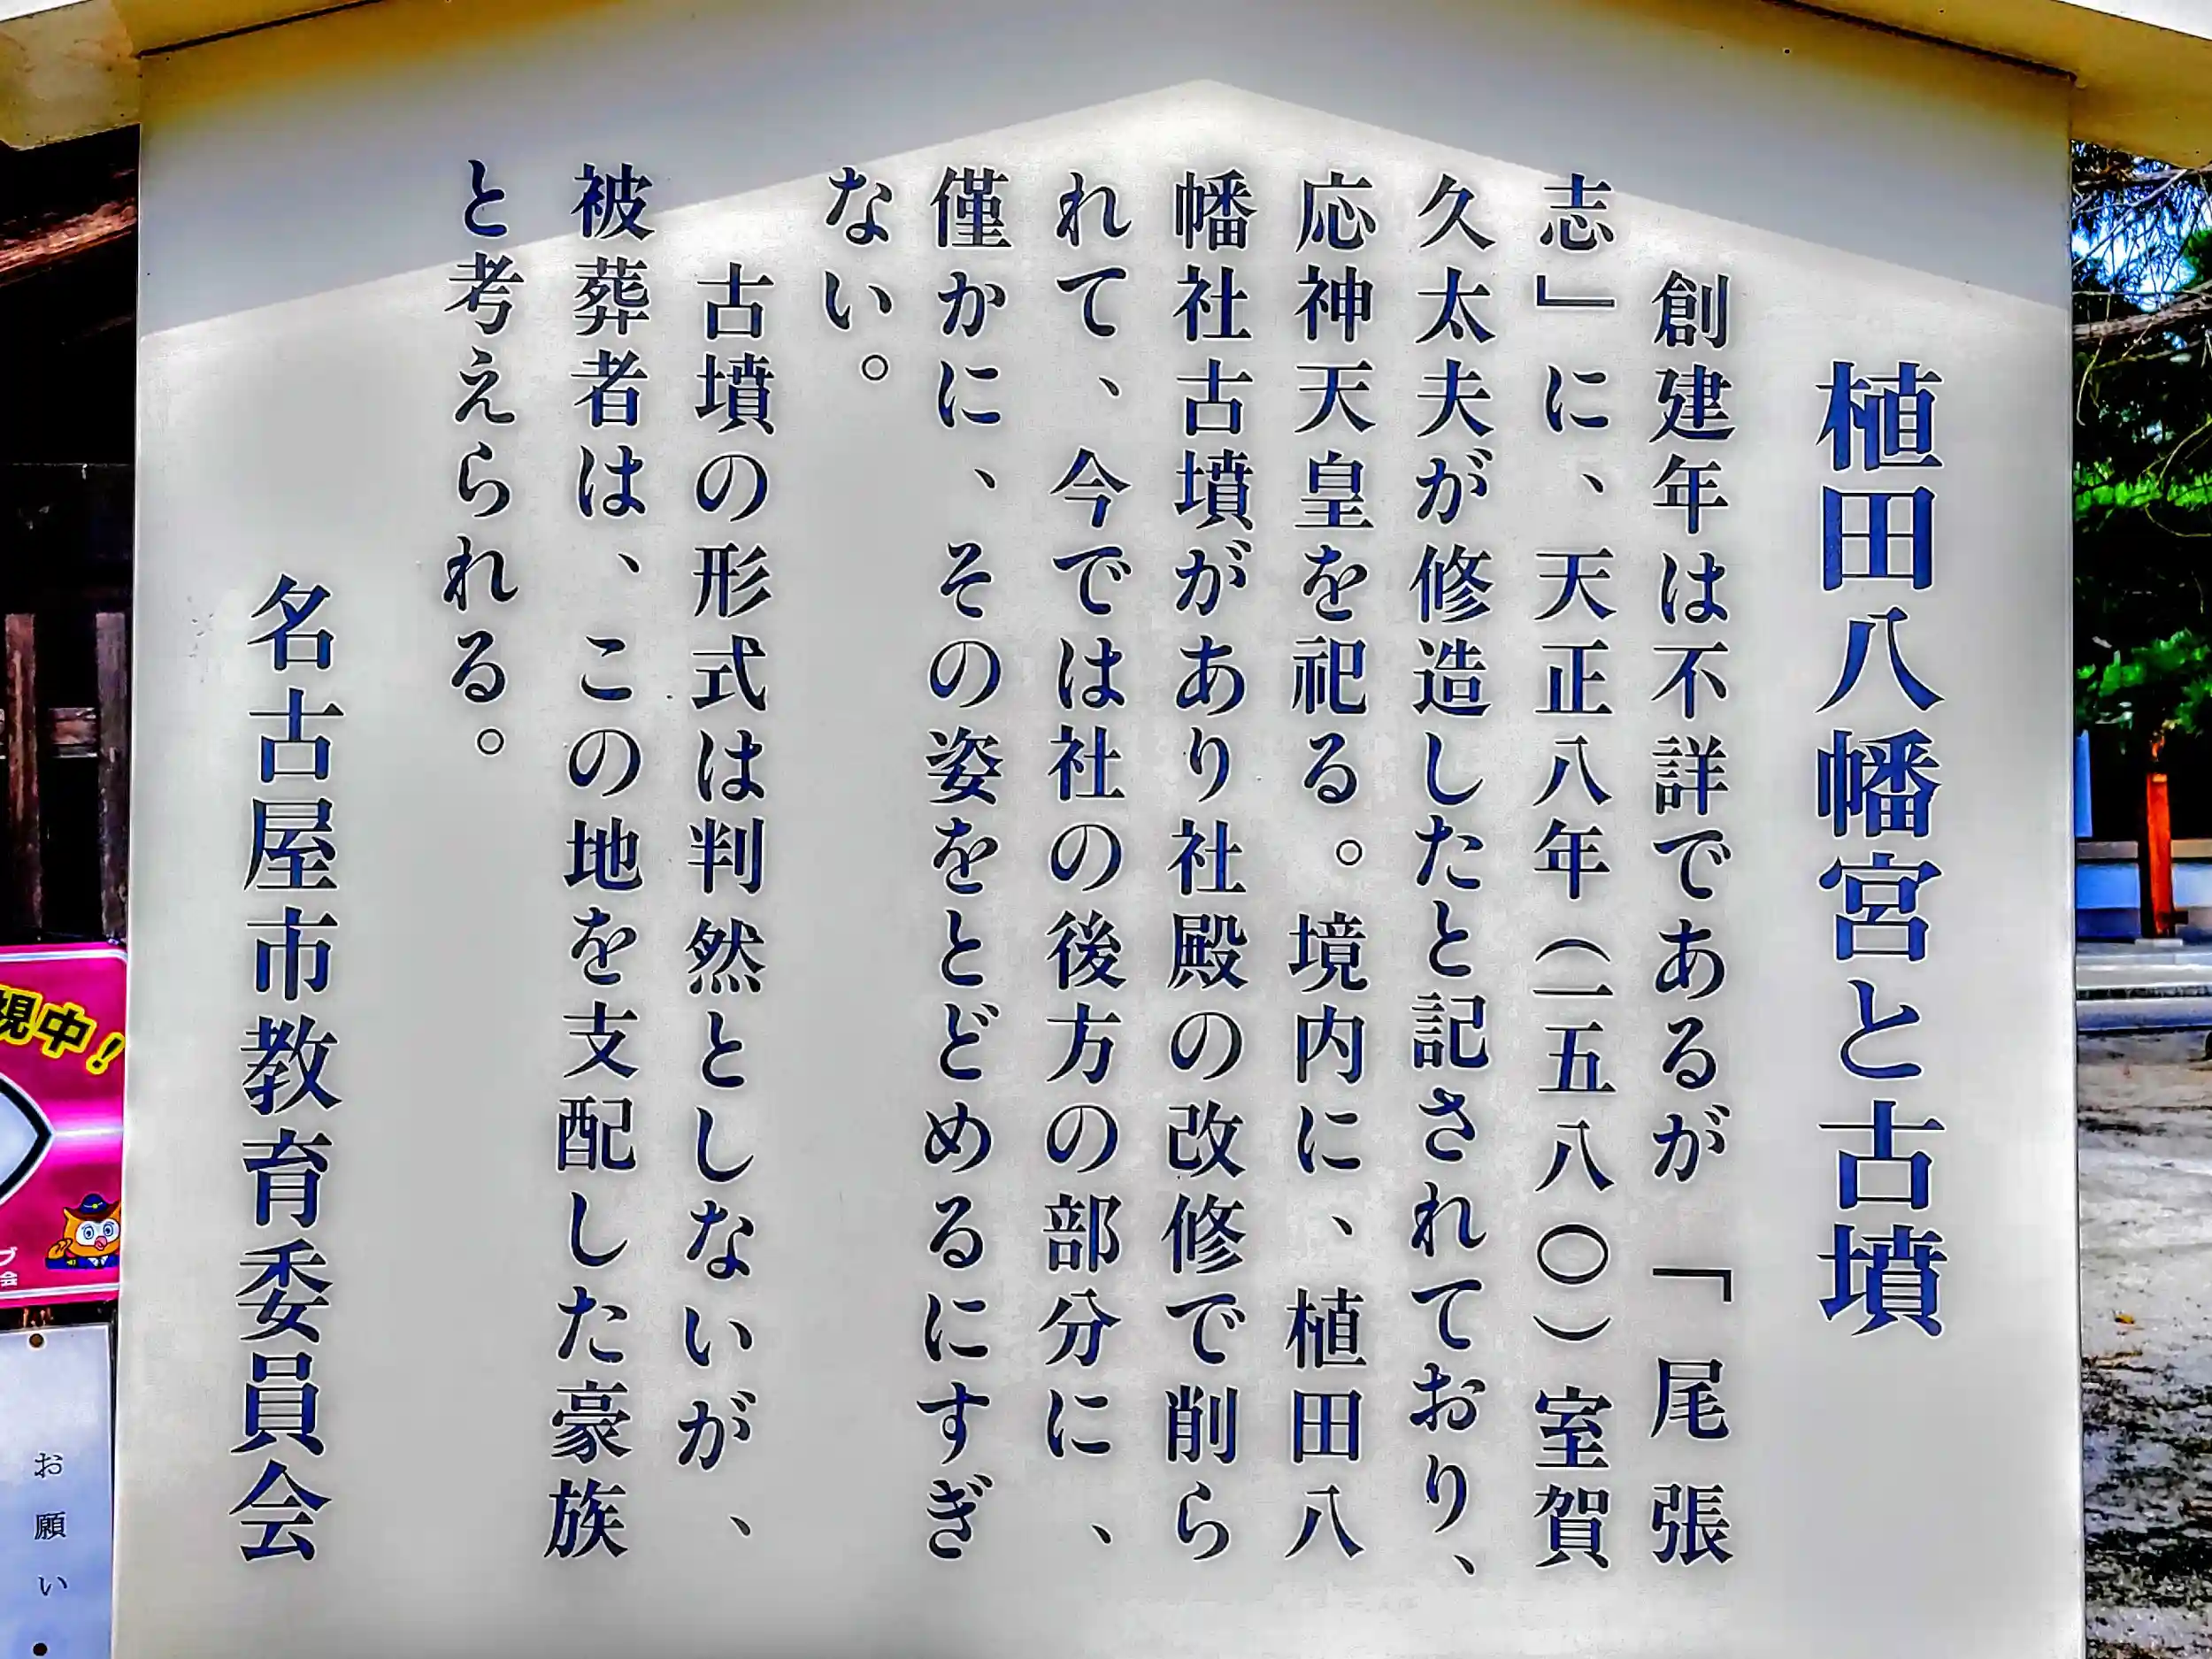 植田八幡宮と古墳
創建年は不詳であるが「尾張
志」に、天正八年（一五八〇）室賀
久太夫が修造したと記されており、
応神天皇を祀る。境内に、植田八
幡社古墳があり社殿の改修で削ら
れて、今では社の後方の部分に、
僅かに、その姿をとどめるにすぎ
ない。
古墳の形式は判然としないが、
被葬者は、この地を支配した豪族
と考えられる。
名古屋市教育委員会
視中!
ブ
会
お願い